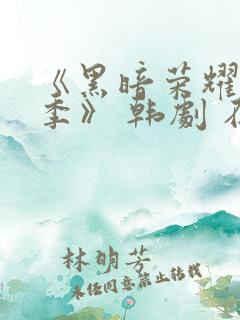 《黑暗荣耀
季》 韩剧
林明芳
未经同意禁止转载